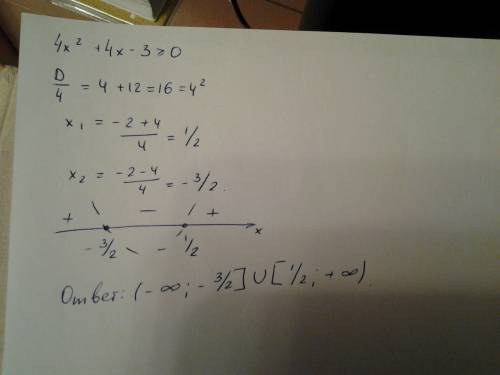 4x² + 4x - 3 ≥ 0
D/4 = 4 + 12 = 16 = 4²
x₁ = (-2 + 4)/4 = 1/2
x₂ = (-2 - 4)/4 = -3/2.
+ \ — / +
-3/2 \ - 1/2 x
Ответ: (-∞; -3/2] ∪ [1/2; +∞).